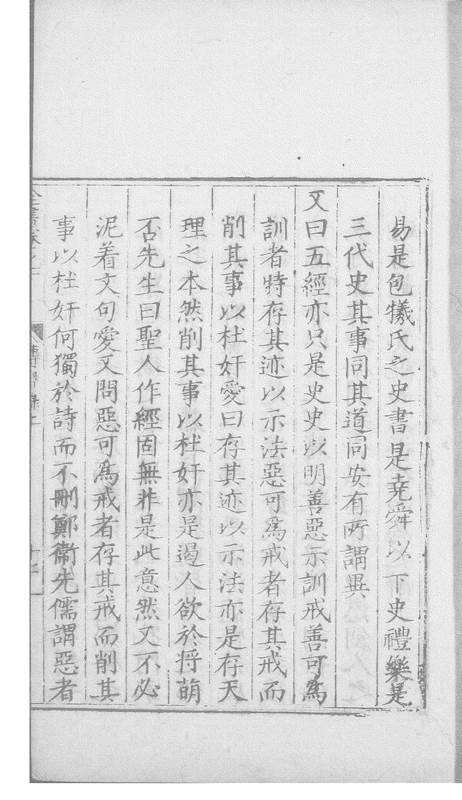 易是包犧氏之史書是堯舜以下史禮樂是
三代史其事同其道同安有所謂異
又曰五經亦只是史史以明善惡示訓戒善可爲
訓者特存其迹以示法惡可爲戒者存其戒而
削其事以杜奸愛曰存其迹以示法亦是存天
理之本然削其事以杜奸亦是遏人欲於將萌
否先生曰聖人作經固無非是此意然又不必
泥着文句愛又問惡可爲戒者存其戒而削其
事以杜奸何獨於詩而不刪鄭衞先儒謂惡者